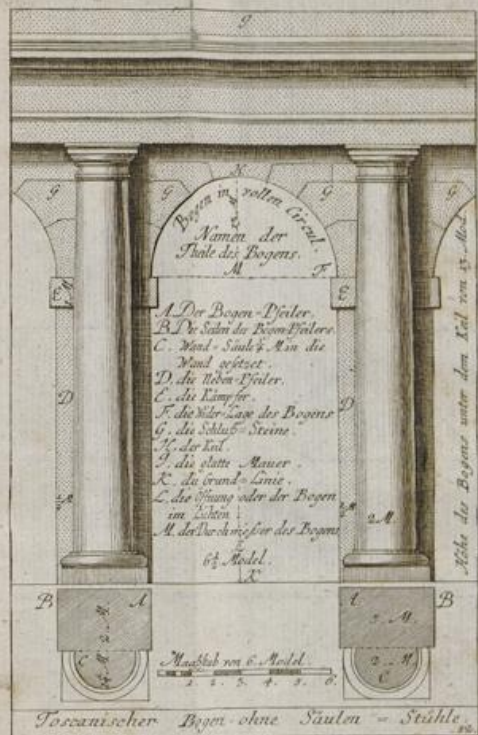 g
G
G
H
G
G
Bogen in vollen Circul.
Namen der
Theile des Bogens.
M
F
E
E
A. Der Bogen-Pfeiler.
B. Die Seiten des Bogen-Pfeilers.
C. Wand-Säule ¼ M. in die
Wand gesetzet.
D. die Neben-Pfeiler.
E. die Kämpfer.
F. die Wider-Lage des Bogens
G. die Schluß-Steine.
H. der Keil.
J. die glatte Mauer.
K. die Grund-Linie.
L. die Öffnung oder der Bogen
im Lichten.
M. der Durchmesser des Bogens
D
D
2 M.
6½ Model.
K
Höhe des Bogens unter dem Keil von 13 Mod.
B
A
A
B
2 M.
3. M.
C
2. M.
C
Maaßstab von 6. Model.
1 2. 3. 4. 5. 6.
Toscanischer Bogen ohne Säulen-Stühle.